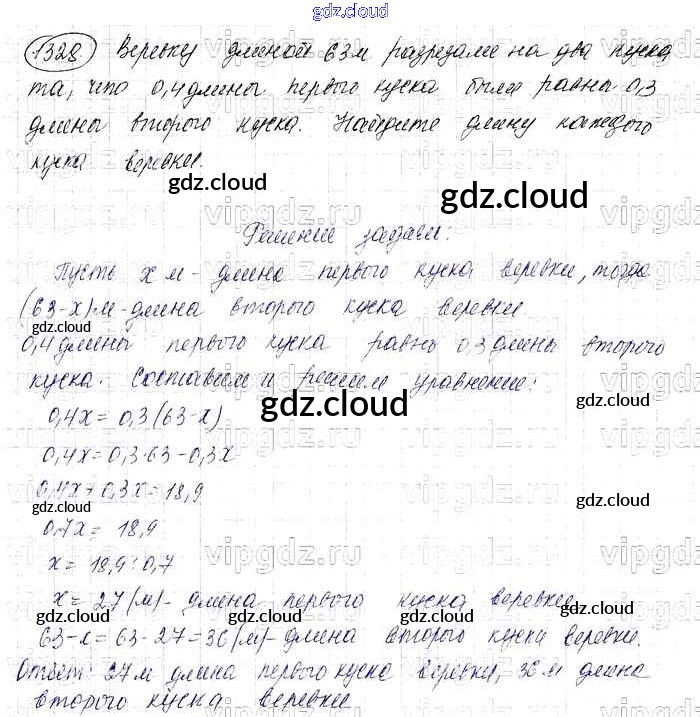 gdz.cloud
1328 Веревку длиной 63 м разрезали на два куска
так, что 0,4 длины первого куска были равны 0,3
длины второго куска. Найдите длину каждого
куска веревки.
gdz.cloud
gdz.cloud
Решение задачи:
Пусть x м - длина первого куска веревки, тогда
(63-x) м - длина второго куска веревки.
gdz.cloud
gdz.cloud
0,4 длины первого куска равно 0,3 длины второго
куска. Составим и решим уравнение:
gdz.cloud
gdz.cloud
0,4x = 0,3(63-x)
0,4x = 0,3·63-0,3x
0,4x+0,3x = 18,9
gdz.cloud
gdz.cloud
0,7x = 18,9
x = 18,9:0,7
x = 27 (м) - длина первого куска веревки
gdz.cloud
gdz.cloud
gdz.cloud
63-x = 63-27 = 36 (м) - длина второго куска веревки.
Ответ: 27 м длина первого куска веревки, 36 м длина
второго куска веревки
vipgdz.ru